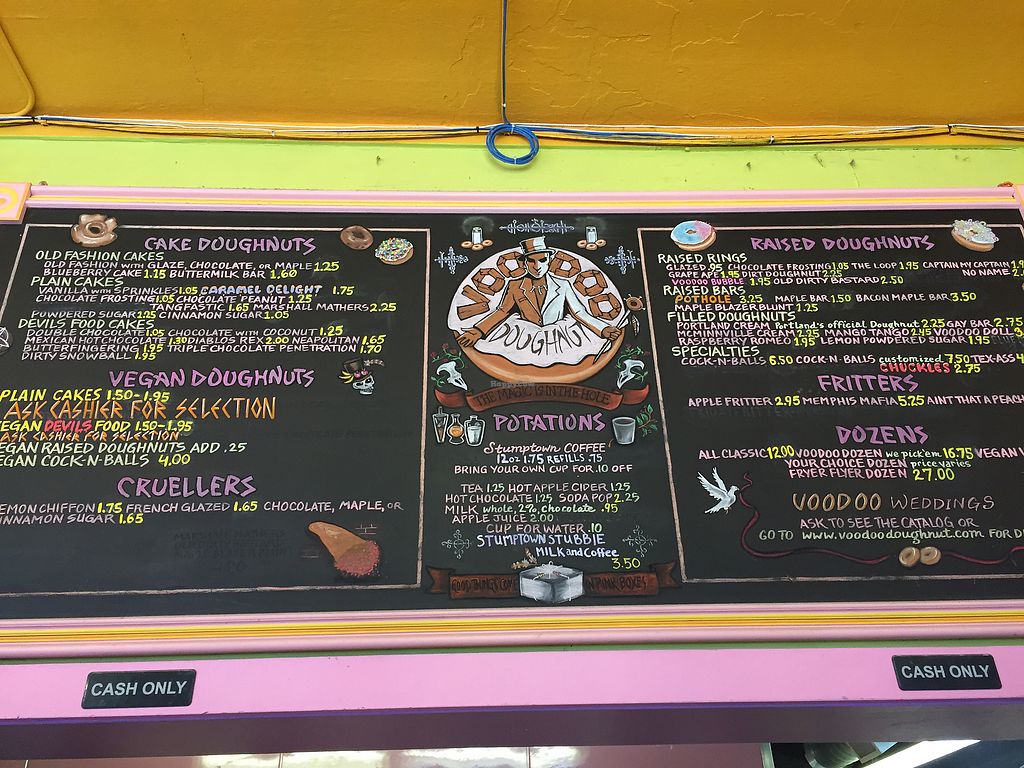 CAKE DOUGHNUTS
OLD FASHION CAKES
OLD FASHION WITH GLAZE, CHOCOLATE, OR MAPLE 1.25
BLUEBERRY CAKE 1.15 BUTTERMILK BAR 1.60
PLAIN CAKES
VANILLA WITH SPRINKLES 1.05 CARAMEL DELIGHT 1.75
CHOCOLATE FROSTING 1.05 CHOCOLATE PEANUT 1.25
TANGFASTIC 1.65 MARSHALL MATHERS 2.25
POWDERED SUGAR 1.25 CINNAMON SUGAR 1.05
DEVILS FOOD CAKES
DOUBLE CHOCOLATE 1.05 CHOCOLATE WITH COCONUT 1.25
MEXICAN HOT CHOCOLATE 1.30 DIABLOS REX 2.00 NEAPOLITAN 1.65
BUTTERFINGERING 1.95 TRIPLE CHOCOLATE PENETRATION 1.70
DIRTY SNOWBALL 1.95
VEGAN DOUGHNUTS
PLAIN CAKES 1.50-1.95
ASK CASHIER FOR SELECTION
VEGAN DEVILS FOOD 1.50-1.95
ASK CASHIER FOR SELECTION
VEGAN RAISED DOUGHNUTS ADD .25
VEGAN COCK-N-BALLS 4.00
CRUELLERS
LEMON CHIFFON 1.75 FRENCH GLAZED 1.65 CHOCOLATE, MAPLE, OR
CINNAMON SUGAR 1.65
VOODOO
DOUGHNUT
THE MAGIC IS IN THE HOLE
POTATIONS
Stumptown COFFEE
12oz 1.75 REFILLS .75
BRING YOUR OWN CUP FOR .10 OFF
TEA 1.25 HOT APPLE CIDER 1.25
HOT CHOCOLATE 1.25 SODA POP 2.25
MILK whole, 2%, chocolate .95
APPLE JUICE 2.00
CUP FOR WATER .10
STUMPTOWN STUBBIE
MILK and Coffee
3.50
GOOD THINGS COME IN PINK BOXES
RAISED DOUGHNUTS
RAISED RINGS
GLAZED .95 CHOCOLATE FROSTING 1.05 THE LOOP 1.95 CAPTAIN MY CAPTAIN
GRAPE APE 1.95 DIRT DOUGHNUT 2.25 NO NAME
VOODOO BUBBLE 1.95 OLD DIRTY BASTARD 2.50
RAISED BARS
POTHOLE 3.25 MAPLE BAR 1.50 BACON MAPLE BAR 3.50
MAPLE BLAZER BLUNT 1.25
FILLED DOUGHNUTS
PORTLAND CREAM Portland's official Doughnut 2.25 GAY BAR 2.75
MCMINNVILLE CREAM 2.95 MANGO TANGO 2.45 VOODOO DOLL
RASPBERRY ROMEO 1.95 LEMON POWDERED SUGAR 1.95
SPECIALTIES
COCK-N-BALLS 6.50 COCK-N-BALLS customized 7.50 TEX-ASS
CHUCKLES 2.75
FRITTERS
APPLE FRITTER 2.95 MEMPHIS MAFIA 5.25 AINT THAT A PEACH
DOZENS
ALL CLASSIC 12.00 VOODOO DOZEN we pick'em 16.75 VEGAN
YOUR CHOICE DOZEN price varies
FRYER FLYER DOZEN 27.00
VOODOO WEDDINGS
ASK TO SEE THE CATALOG OR
GO TO www.voodoodoughnut.com FOR
CASH ONLY
CASH ONLY